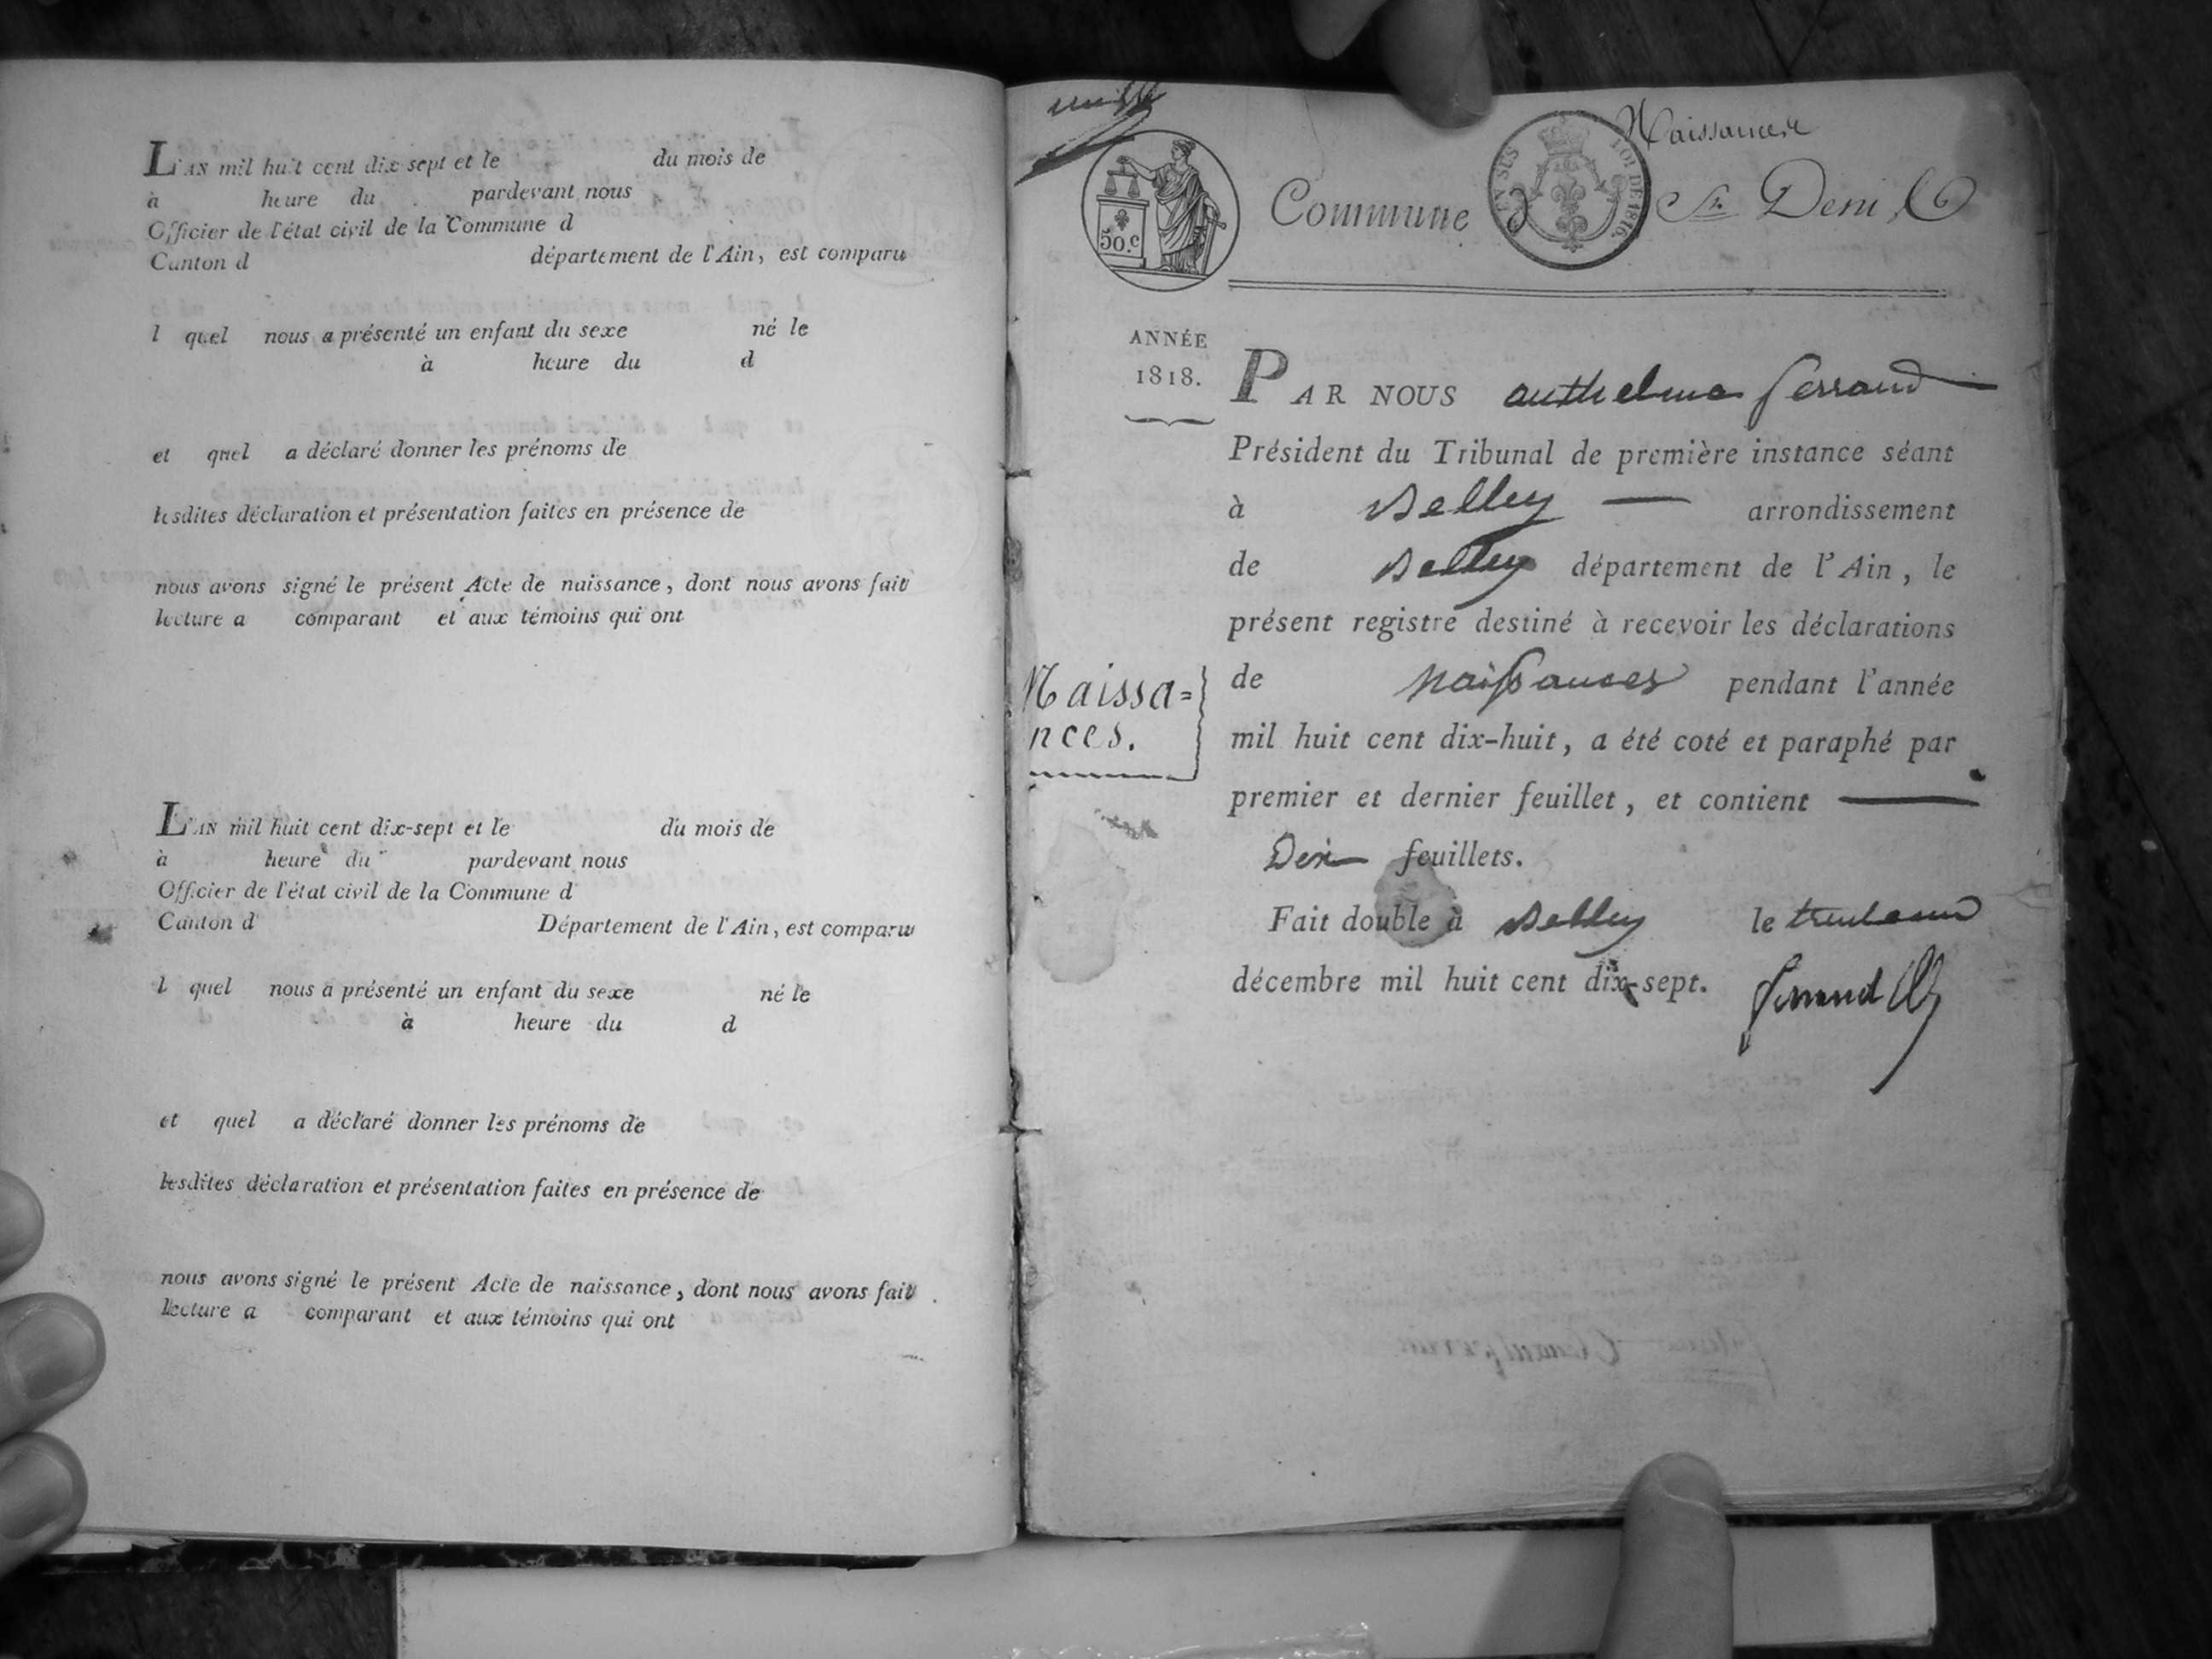 L'AN mil huit cent dix-sept et le du mois de
à heure du pardevant nous
Officier de l'état civil de la Commune d
Canton d département de l'Ain, est comparu
l quel nous a présenté un enfant du sexe né le
à heure du d
et quel a déclaré donner les prénoms de
lesdites déclaration et présentation faites en présence de
nous avons signé le présent Acte de naissance, dont nous avons fait
lecture a comparant et aux témoins qui ont
L'AN mil huit cent dix-sept et le du mois de
à heure du pardevant nous
Officier de l'état civil de la Commune d
Canton d Département de l'Ain, est comparu
l quel nous a présenté un enfant du sexe né le
à heure du d
et quel a déclaré donner les prénoms de
lesdites déclaration et présentation faites en présence de
nous avons signé le présent Acte de naissance, dont nous avons fait
lecture a comparant et aux témoins qui ont
Naissances
50.c
EN SUS LOI DE 1816.
Commune de St. Denis
ANNÉE
1818.
PAR NOUS anthelme ferrand
Président du Tribunal de première instance séant
à Belley — arrondissement
de Belley département de l'Ain, le
présent registre destiné à recevoir les déclarations
de naissances pendant l'année
Naissa=
nces.
mil huit cent dix-huit, a été coté et paraphé par
premier et dernier feuillet, et contient —
Dix feuillets.
Fait double à Belley le trente un
décembre mil huit cent dix-sept.
ferrand